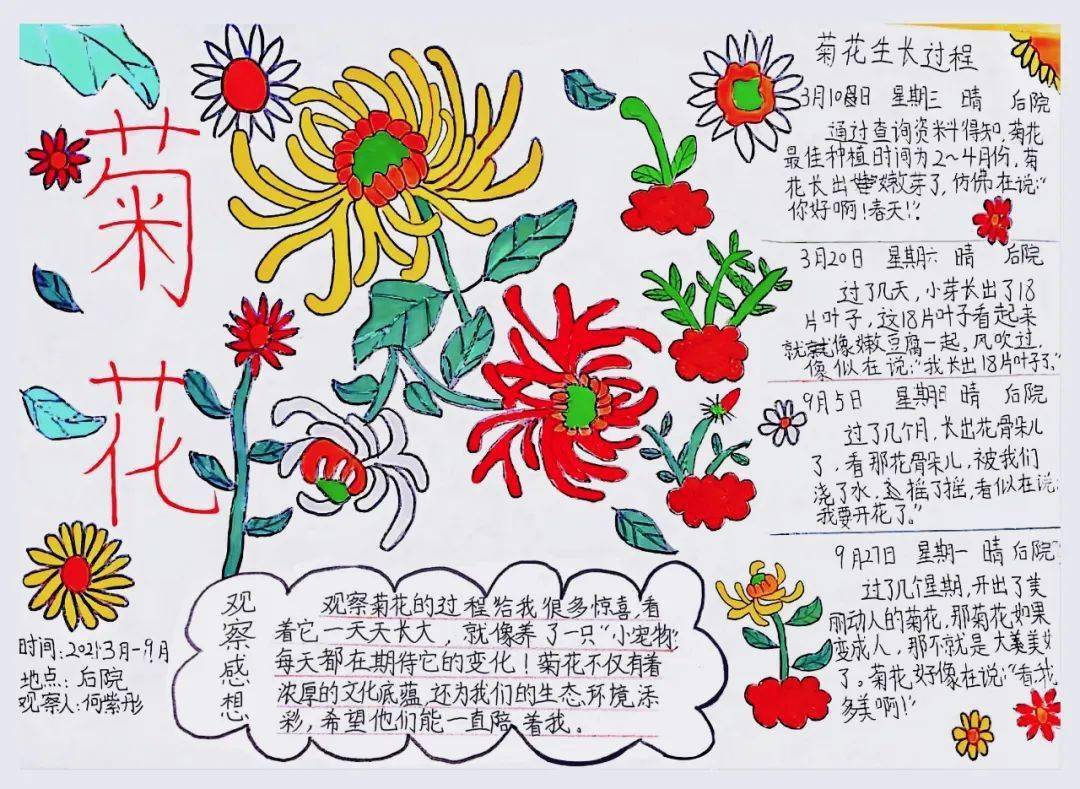 菊花
菊花生长过程
3月10日 星期三 晴 后院
通过查询资料得知，菊花
最佳种植时间为2～4月份，菊
花长出嫩芽了，仿佛在说：“
你好啊！春天！”
3月20日 星期六 晴 后院
过了几天，小芽长出了18
片叶子，这18片叶子看起来
就像嫩豆腐一起，风吹过，
像似在说：“我长出18片叶子了。”
9月5日 星期日 晴 后院
过了几个月，长出花骨朵儿
了，看那花骨朵儿，被我们
浇了水，摇了摇，看似在说：
“我要开花了。”
9月27日 星期一 晴 后院
过了几个星期，开出了美
丽动人的菊花，那菊花如果
变成人，那不就是大美女
了。菊花好像在说：“看，我
多美啊！”
观察感想
观察菊花的过程给我很多惊喜，看
着它一天天长大，就像养了一只“小宠物”，
每天都在期待它的变化！菊花不仅有着
浓厚的文化底蕴，还为我们的生态环境添
彩，希望他们能一直陪着我。
时间：2021.3月-9月
地点：后院
观察人：何紫彤